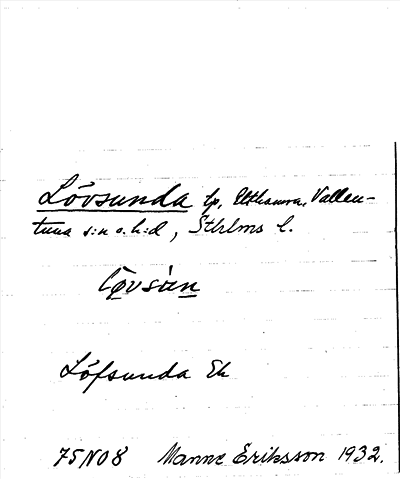 Lövsunda tp, Ubbhamra, Vallen-
tuna s:n o. h:d, Sthlms l.
lø̱vsu̇n̲
Löfsunda Ek
75N08 Manne Eriksson 1932.